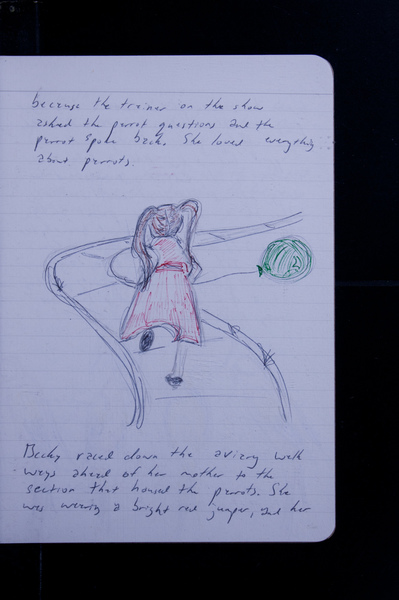 because the trainer on the show
asked the parrot questions and the
parrot spoke back. She loved everything
about parrots.
Becky raced down the aviary walk
ways ahead of her mother to the
section that housed the parrots. She
was wearing a bright red jumper, and her